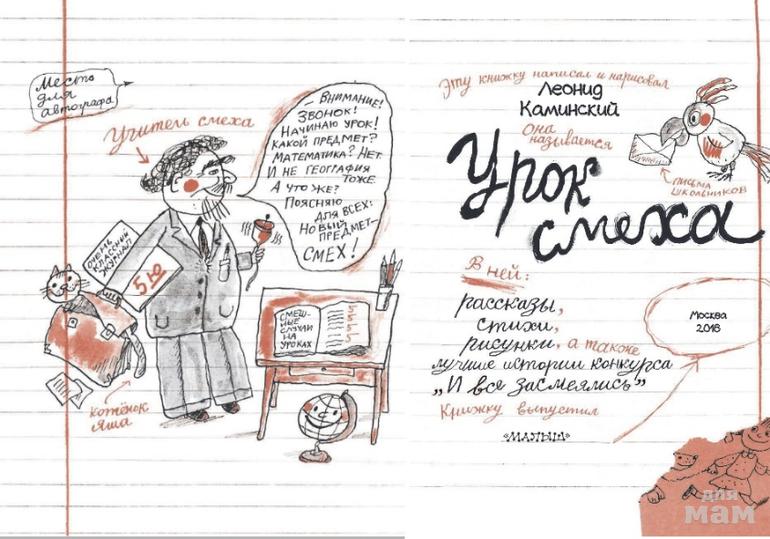 Место
для
автографа
Учитель смеха
— Внимание!
Звонок!
Начинаю урок!
Какой предмет?
Математика? Нет.
И не география
тоже.
А что же?
Поясняю
для всех:
Новый
предмет —
СМЕХ!
Очень
классный
журнал
5 Ю
Смеш-
ные
случаи
на
уроках
Котёнок
Яша
Эту книжку написал и нарисовал
Леонид
Каминский
Она
называется
Урок
смеха
письма
школьников
В ней:
рассказы,
стихи,
рисунки, а также
лучшие истории конкурса
„И все засмеялись”
Книжку выпустил
«МАЛЫШ»
Москва
2016
для
мам